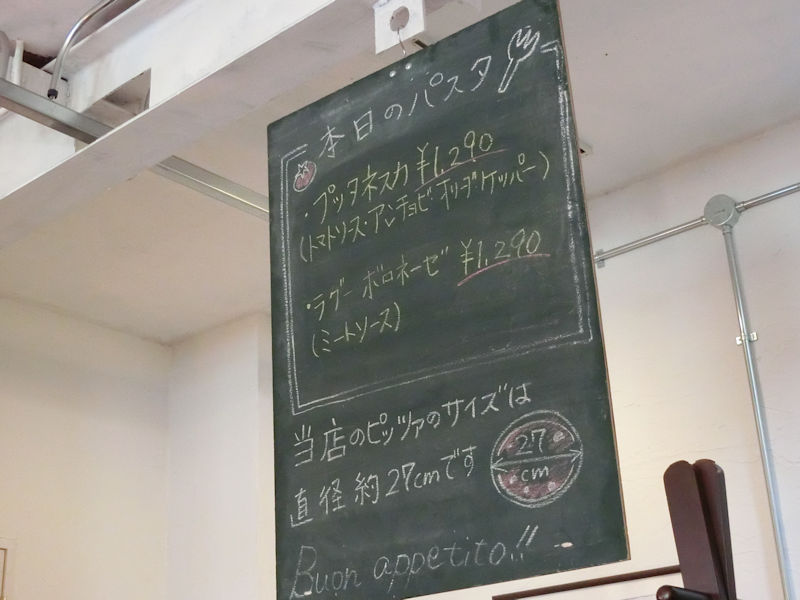 本日のパスタ
・プッタネスカ ¥1,290
(トマトソース・アンチョビ オリーブ ケッパー)
・ラグー ボロネーゼ ¥1,290
(ミートソース)
当店のピッツァのサイズは
直径約27cmです
27
cm
Buon appetito!!